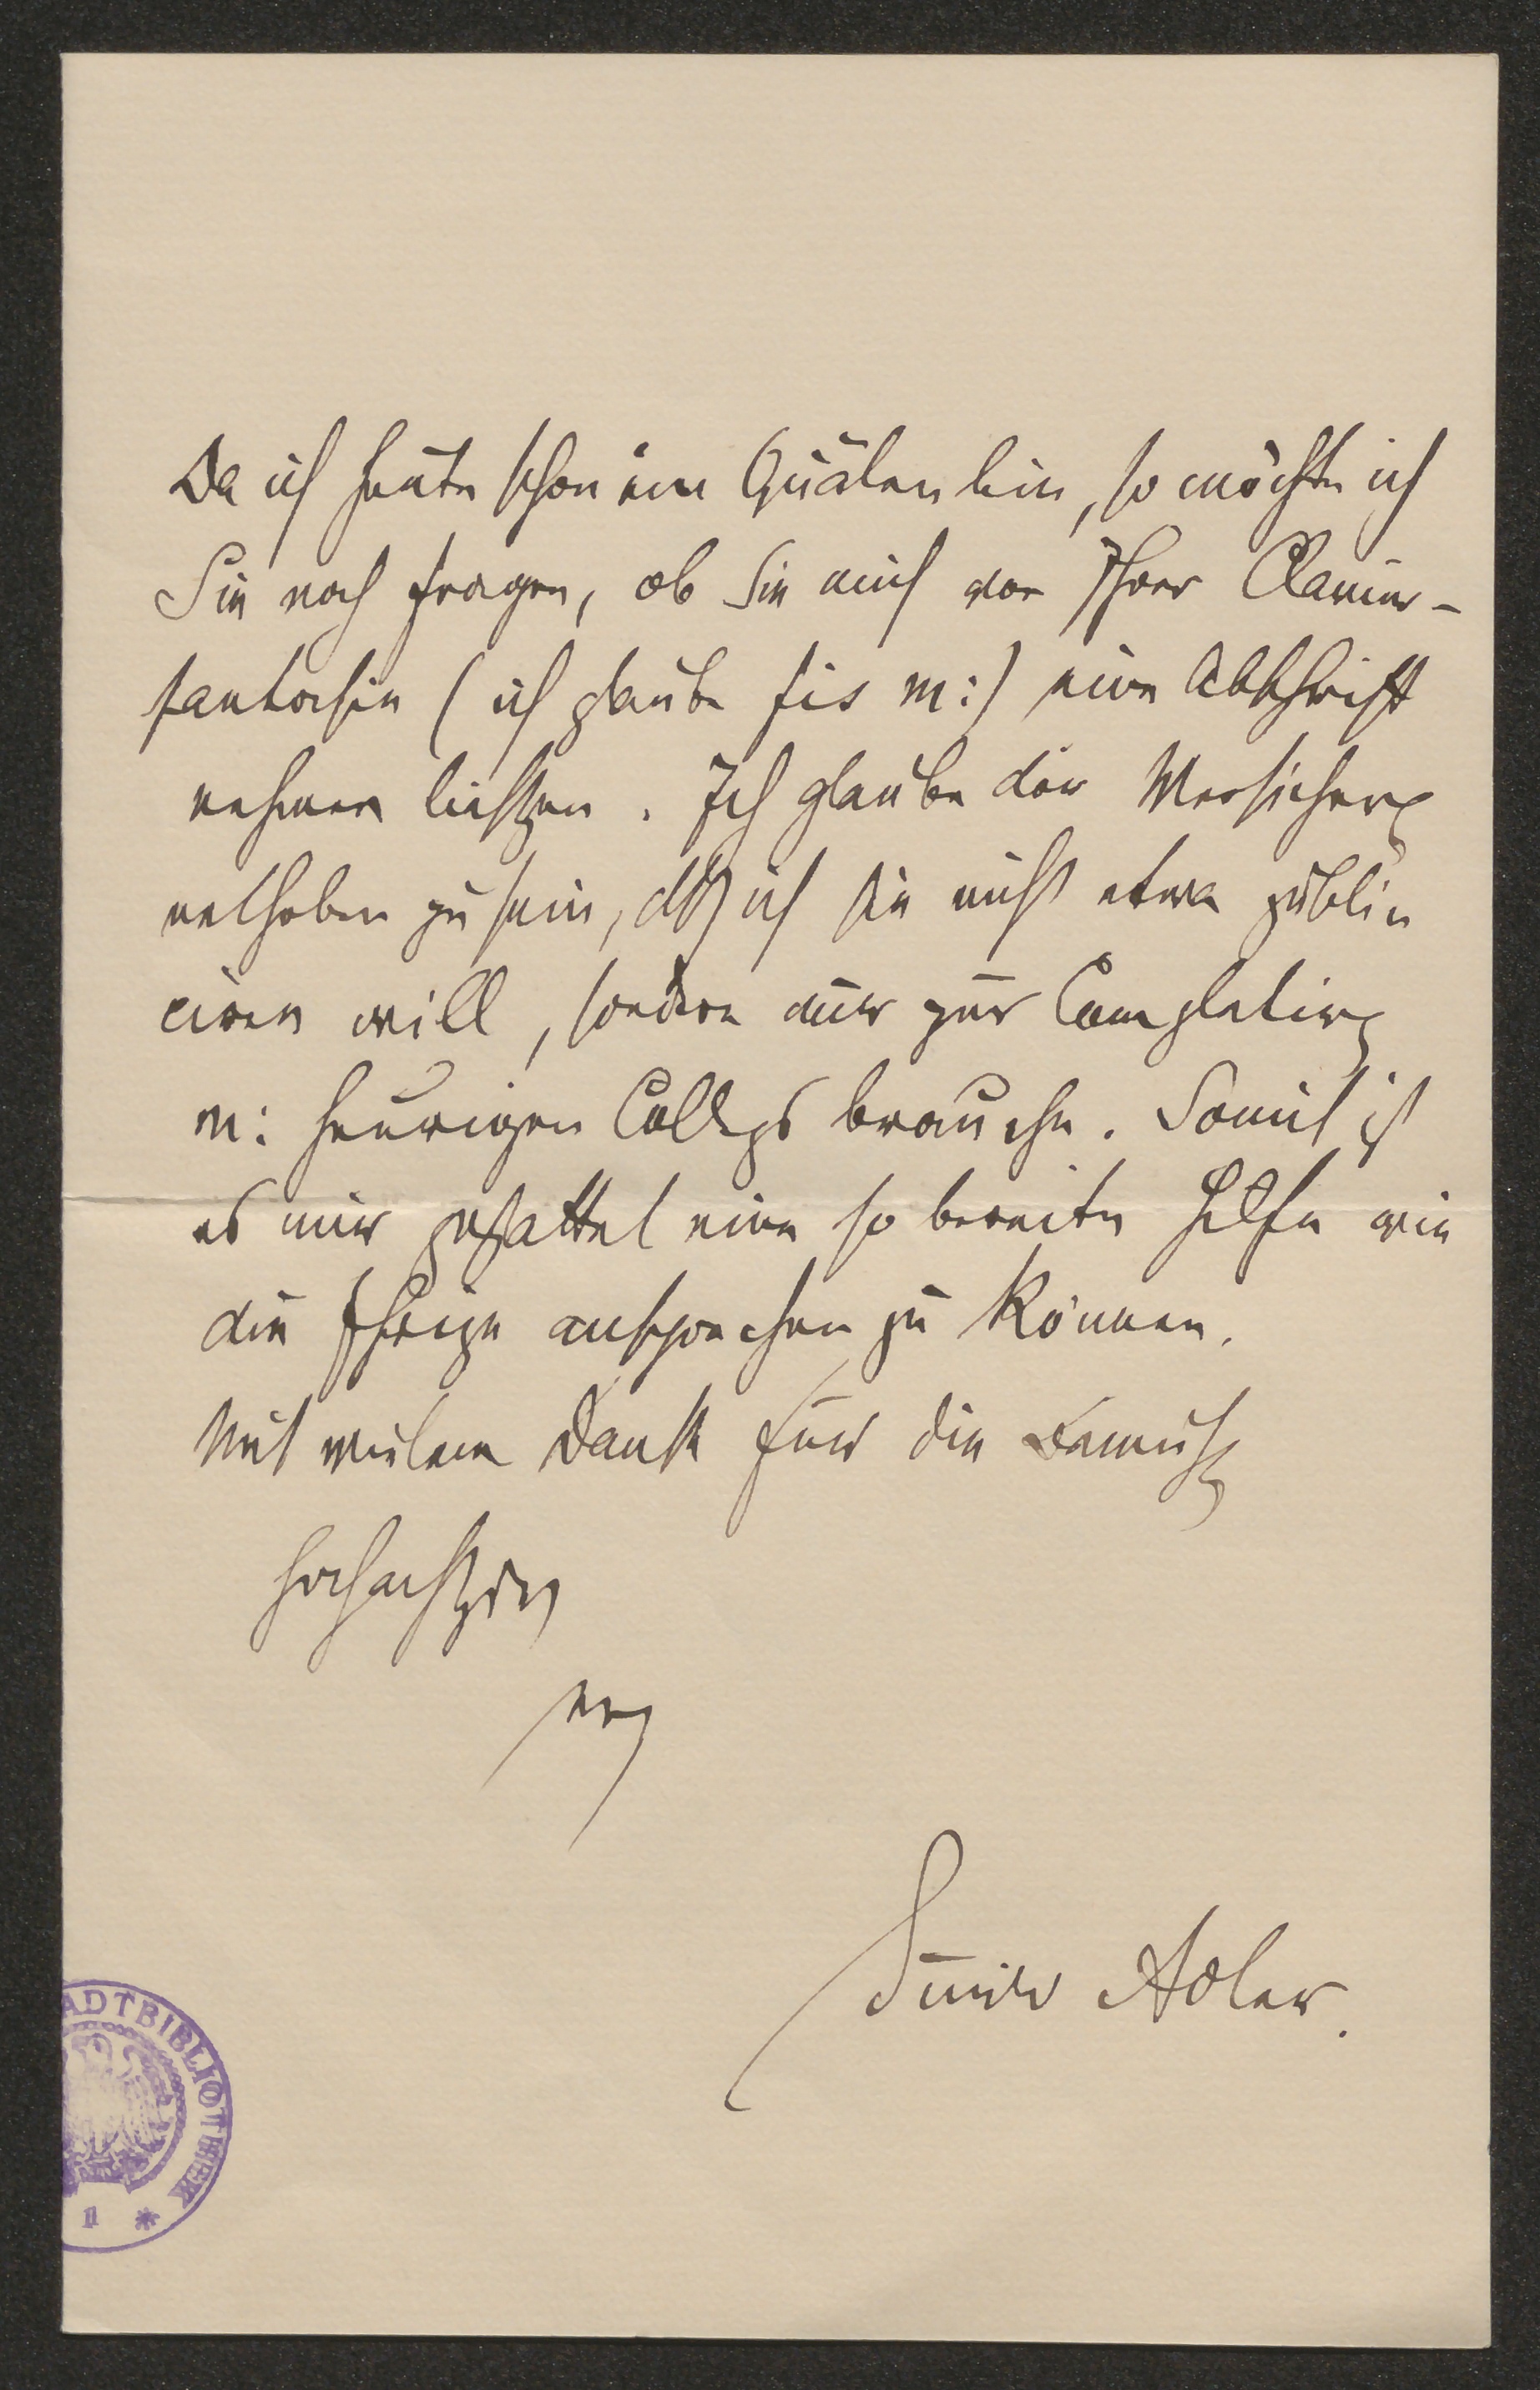 Da ich heute schon im Quälen bin, so möchte ich
Sie noch fragen, ob Sie mich von Ihrer Clavier-
fantasie (ich glaube fis m:) eine Abschrift
nehmen liessen. Ich glaube der Versicherg
enthoben zu sein, dß ich sie nicht etwa publi
ciren will, sondern nur zur Completirg
m: heurigen Collegs brauche. Somit ist
es mir gestattet eine so bereite Hilfe wie
die Ihrige ansprechen zu können.
Mit vielem Dank für die Bemühg
hochachtgsv
erg
Guido Adler.
ADTBIBLIOTHEK